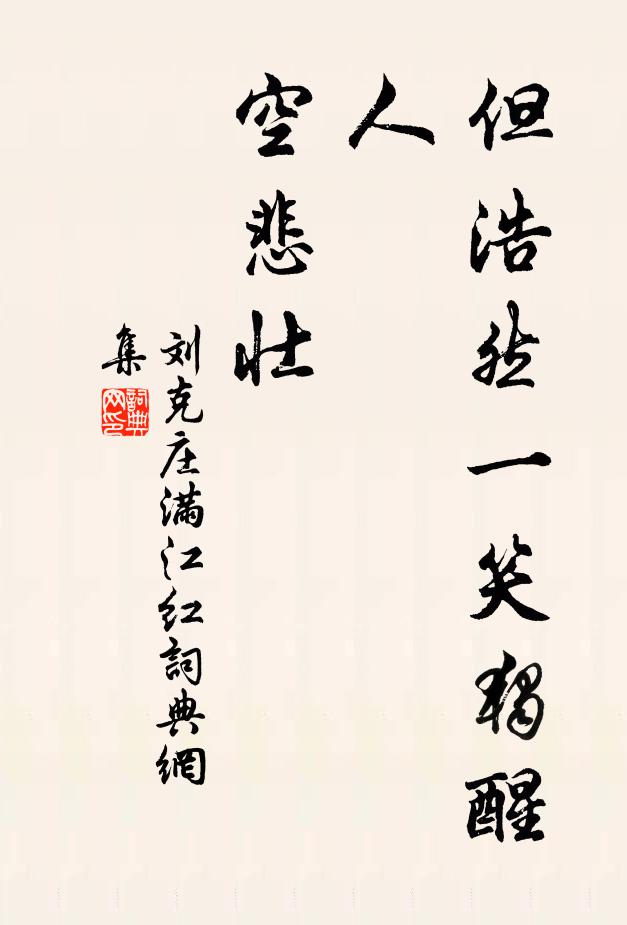 但浩然一笑独醒
人
空悲壮
刘克庄满江红詞典網
集
詞典
网印